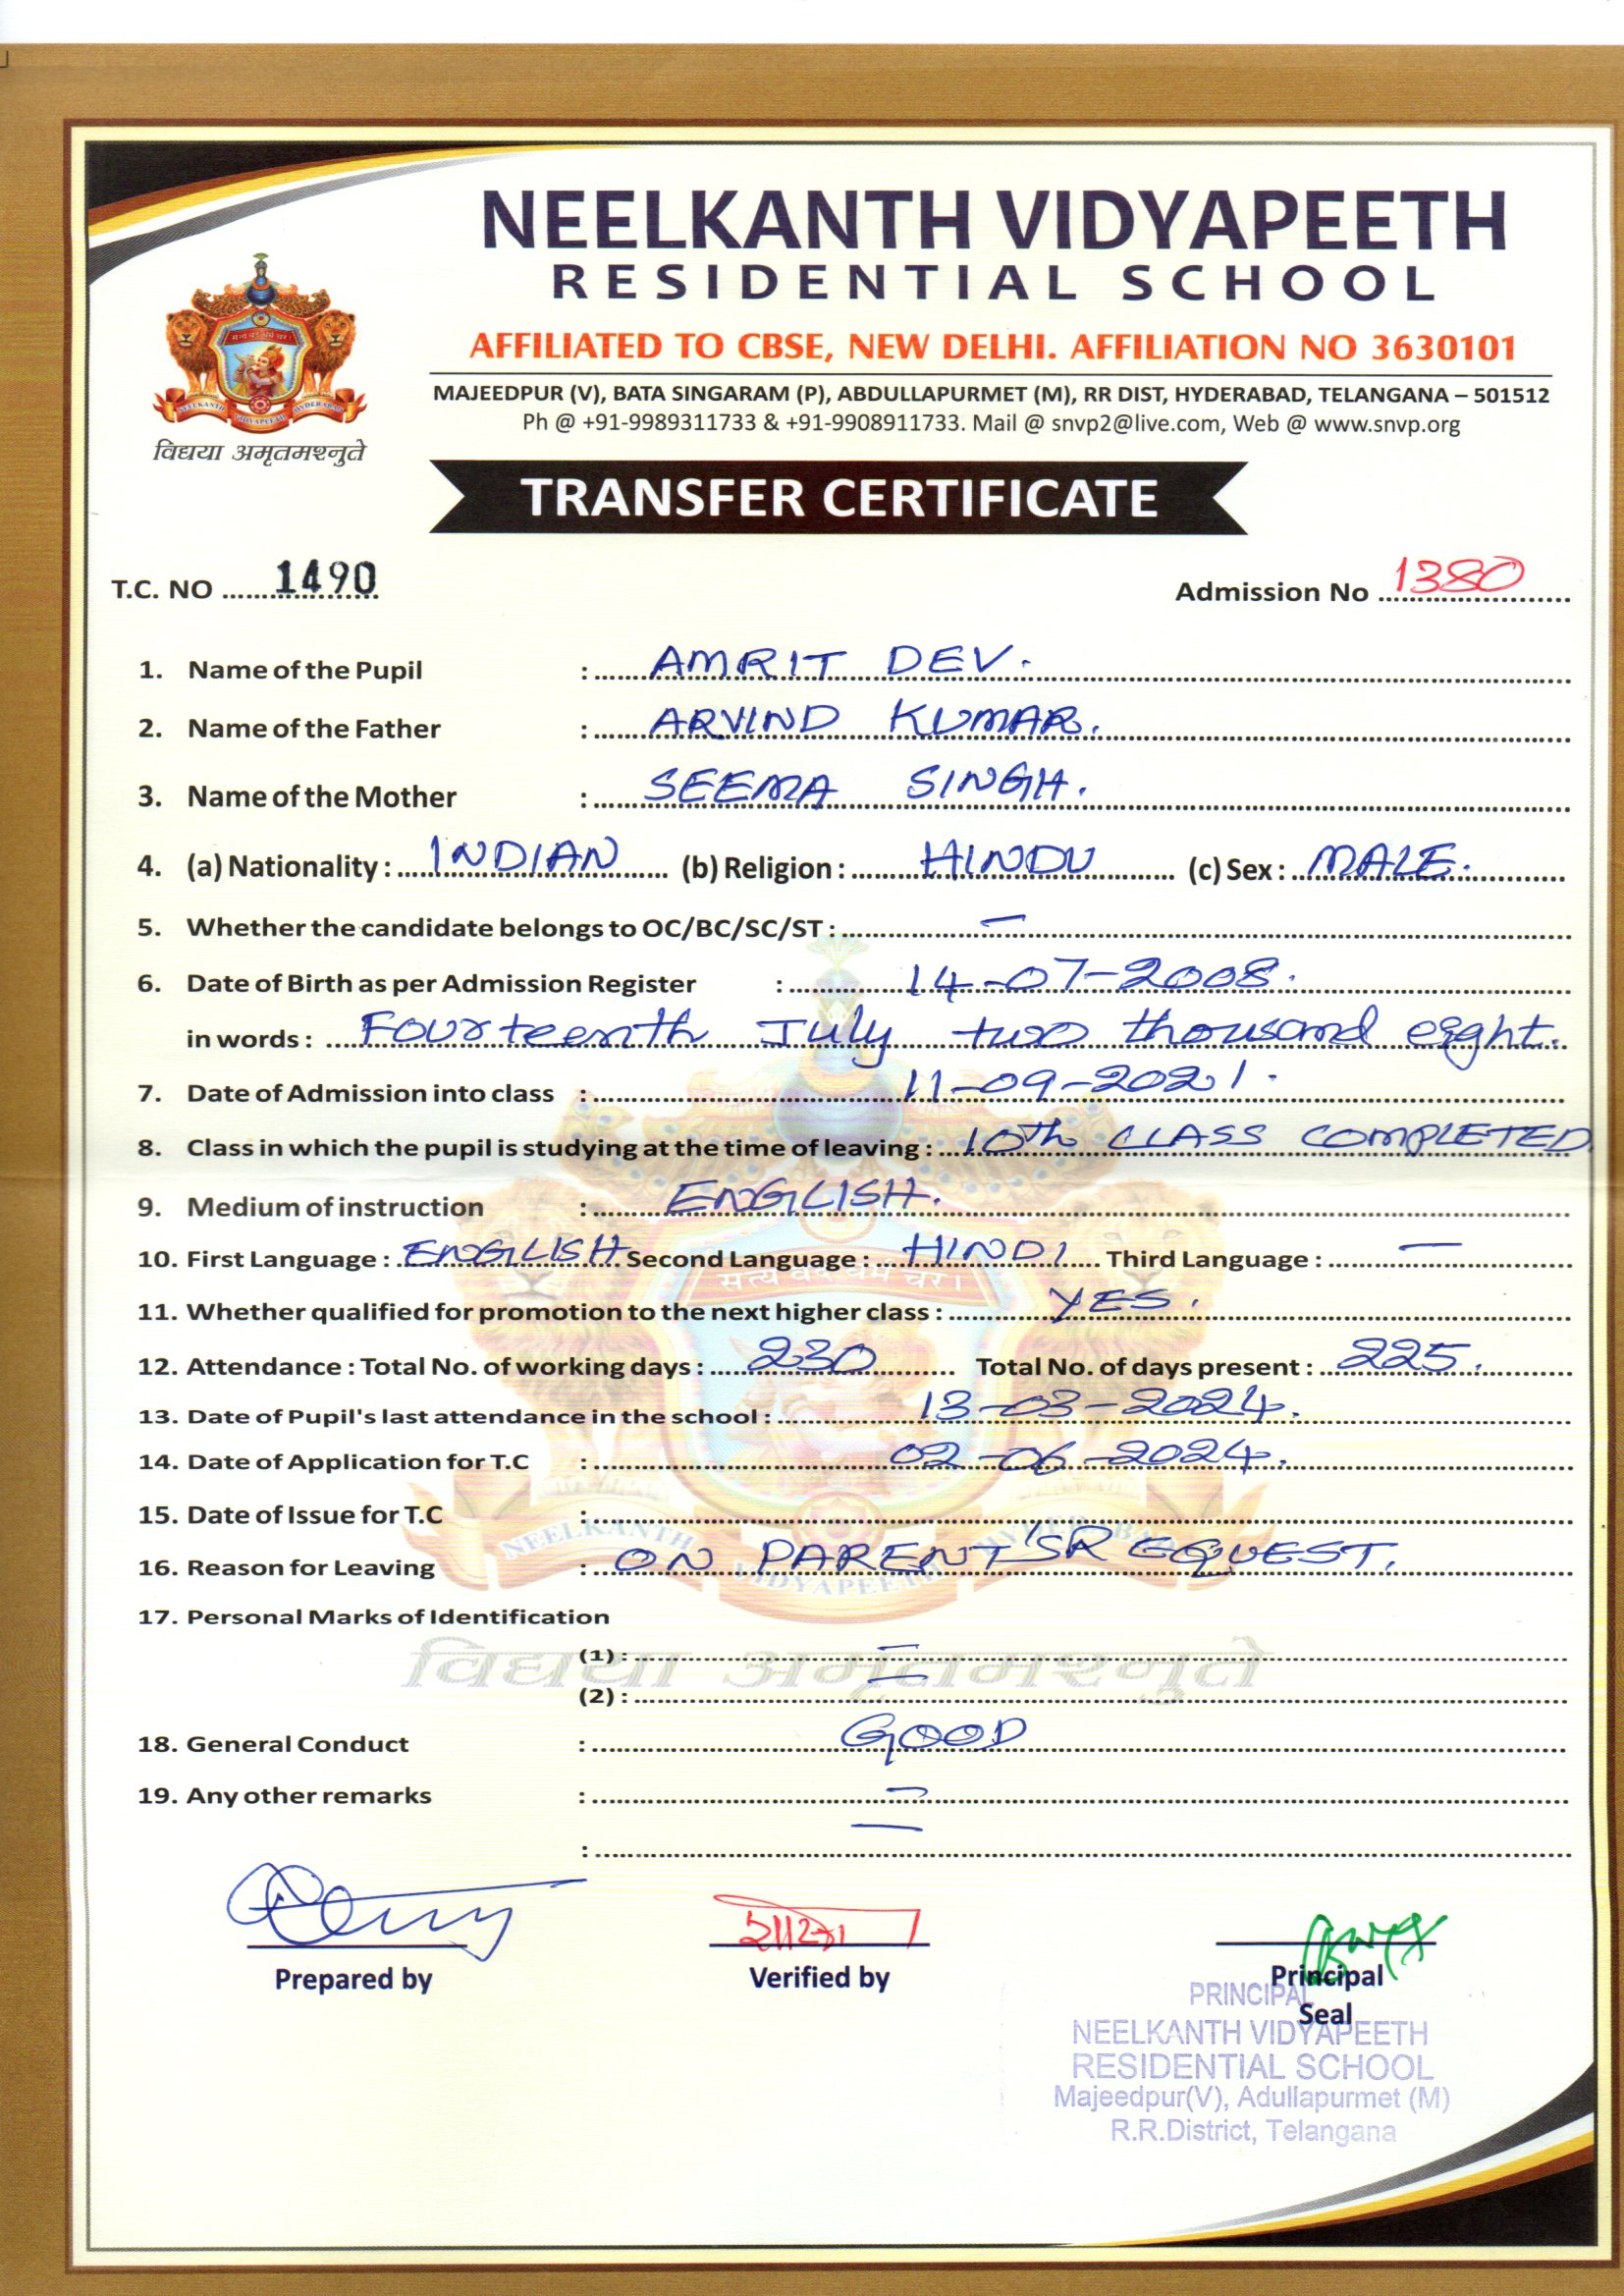 NEELKANTH VIDYAPEETH
RESIDENTIAL SCHOOL
AFFILIATED TO CBSE, NEW DELHI. AFFILIATION NO 3630101
MAJEEDPUR (V), BATA SINGARAM (P), ABDULLAPURMET (M), RR DIST, HYDERABAD, TELANGANA – 501512
Ph @ +91-9989311733 & +91-9908911733. Mail @ snvp2@live.com, Web @ www.snvp.org
सत्यं वद धर्मं चर।
NEELKANTH VIDYAPEETH HYDERABAD
विद्यया अमृतमश्नुते
TRANSFER CERTIFICATE
T.C. NO 1490 Admission No 1380
1. Name of the Pupil : AMRIT DEV.
2. Name of the Father : ARVIND KUMAR.
3. Name of the Mother : SEEMA SINGH.
4. (a) Nationality : INDIAN (b) Religion : HINDU (c) Sex : MALE.
5. Whether the candidate belongs to OC/BC/SC/ST : —
6. Date of Birth as per Admission Register : 14-07-2008.
in words : Fourteenth July two thousand eight.
7. Date of Admission into class : 11-09-2021.
8. Class in which the pupil is studying at the time of leaving : 10th CLASS COMPLETED.
9. Medium of instruction : ENGLISH.
10. First Language : ENGLISH Second Language : HINDI Third Language : —
11. Whether qualified for promotion to the next higher class : YES.
12. Attendance : Total No. of working days : 230 Total No. of days present : 225.
13. Date of Pupil's last attendance in the school : 13-03-2024.
14. Date of Application for T.C : 02-06-2024.
15. Date of Issue for T.C :
16. Reason for Leaving : ON PARENT'S REQUEST.
17. Personal Marks of Identification
(1) : —
(2) : —
विद्यया अमृतमश्नुते
18. General Conduct : GOOD
19. Any other remarks : —
: —
Prepared by Verified by Principal
Seal
PRINCIPAL
NEELKANTH VIDYAPEETH
RESIDENTIAL SCHOOL
Majeedpur(V), Adullapurmet (M)
R.R.District, Telangana